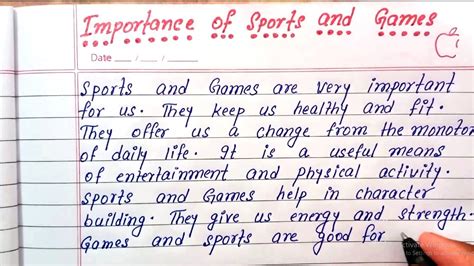 Importance of Sports and Games
Date / /
Sports and Games are very important
for us. They keep us healthy and fit.
They offer us a change from the monotor
of daily life. It is a useful means
of entertainment and physical activity.
Sports and Games help in character
building. They give us energy and strength.
Games and sports are good for
Activate Windows
to Settings to activate